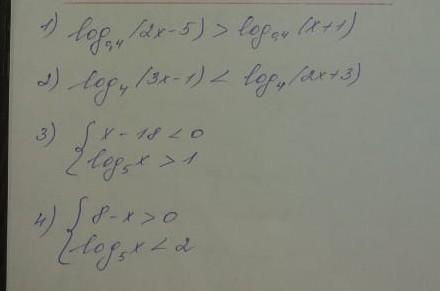 1) log₀,₄(2x-5) > log₀,₄(x+1)
2) log₄(3x-1) < log₄(2x+3)
3) { x-18<0
log₅x > 1
4) { 8-x>0
log₅x < 2